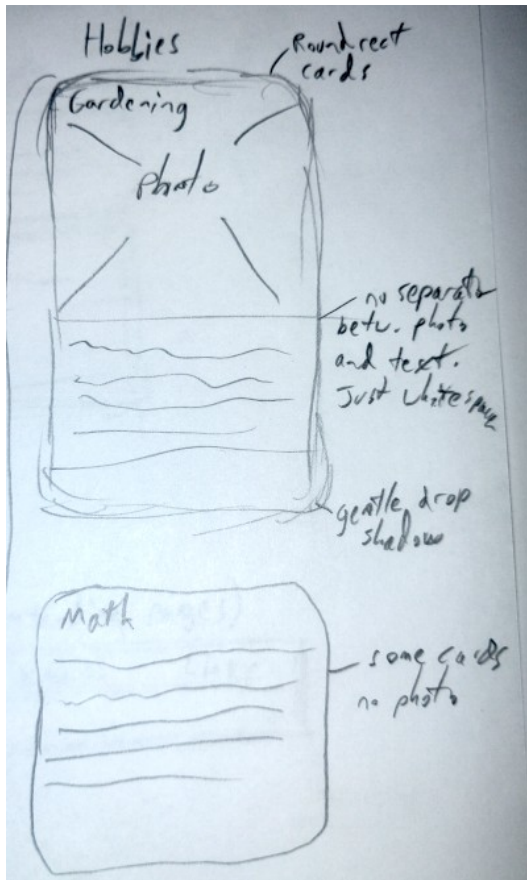 Hobbies
Roundrect
cards
Gardening
photo
no separator
betw. photo
and text.
Just whitespace
gentle drop
shadow
Math
some cards
no photo